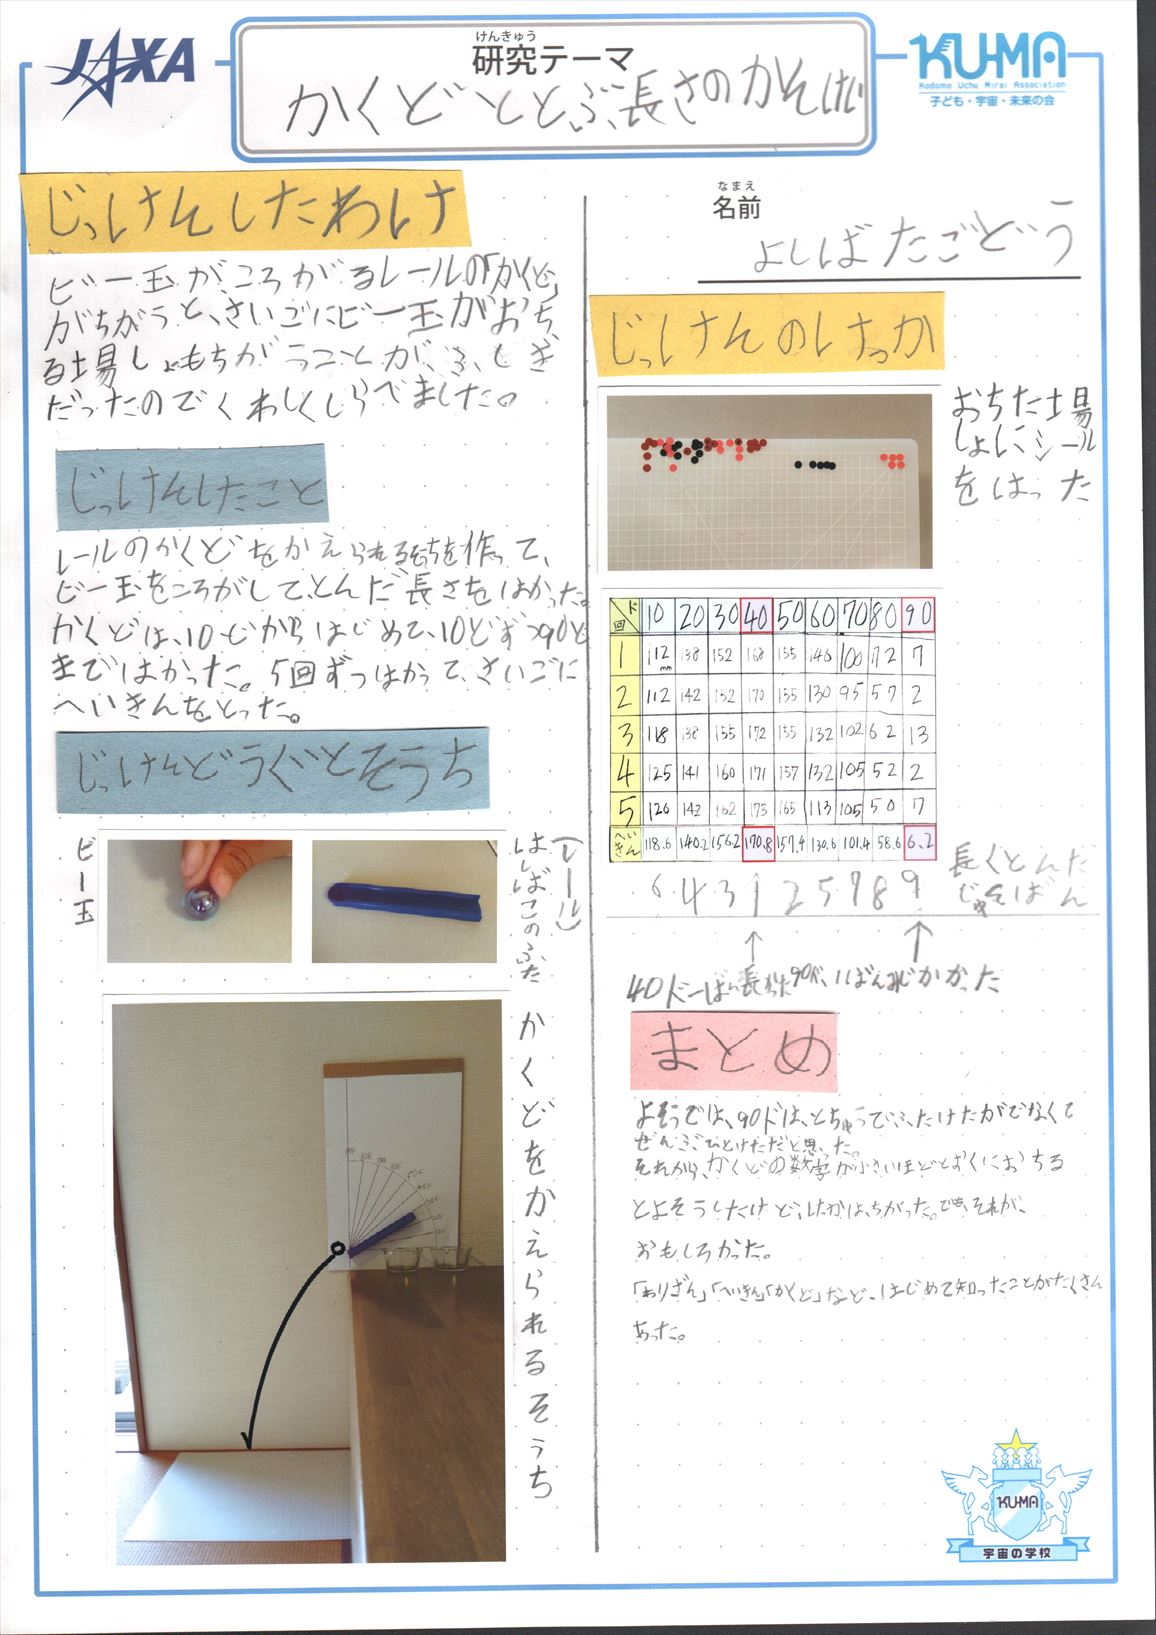 JAXA
けんきゅう
研究テーマ
かくどととぶ長さのかんけい
KU-MA
Kodomo Uchu Mirai Association
子ども・宇宙・未来の会
じっけんしたわけ
ビー玉がころがるレールの「かくど」
がちがうと、さいごにビー玉がおち
る場しょもちがうことが、ふしぎ
だったのでくわしくしらべました。
じっけんしたこと
レールのかくどをかえられるそうちを作って、
ビー玉をころがして、とんだ長さをはかった。
かくどは、10どからはじめて、10どずつ90ど
まではかった。5回ずつはかって、さいごに
へいきんをとった。
じっけんどうぐとそうち
ビー玉
(レール)
はしばこのふた
かくどをかえられるそうち
なまえ
名前
よししばたごどう
じっけんのけっか
おちた場
しょにシール
をはった
ド 回 10 20 30 40 50 60 70 80 90
1 112mm 138 152 168 155 146 100 72 7
2 112 142 152 170 155 130 95 57 2
3 118 138 155 172 155 132 102 62 13
4 125 141 160 171 157 132 105 52 2
5 126 142 162 173 165 113 105 50 7
へいきん 118.6 140.2 156.2 170.8 157.4 130.6 101.4 58.6 6.2
6 4 3 1 2 5 7 8 9
長くとんだ
じゅんばん
40ド一ばん長かった 90ド、いばんみじかかった
まとめ
よそうでは、90ドは、とちゅうでふたけたがでなくて
ぜんぶひとけただと思った。
それから、かくどの数字が小さいほどとおくにおちる
とよそうしたけどしたかは、ちがった。でも、それが、
おもしろかった。
「わりざん」「へいきん」「かくど」など、はじめて知ったことがたくさん
あった。
KU-MA
宇宙の学校